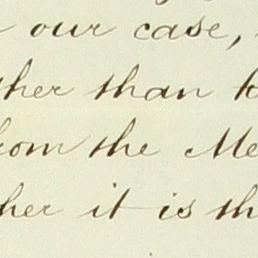 our case,
ther than to
from the Me
her it is th